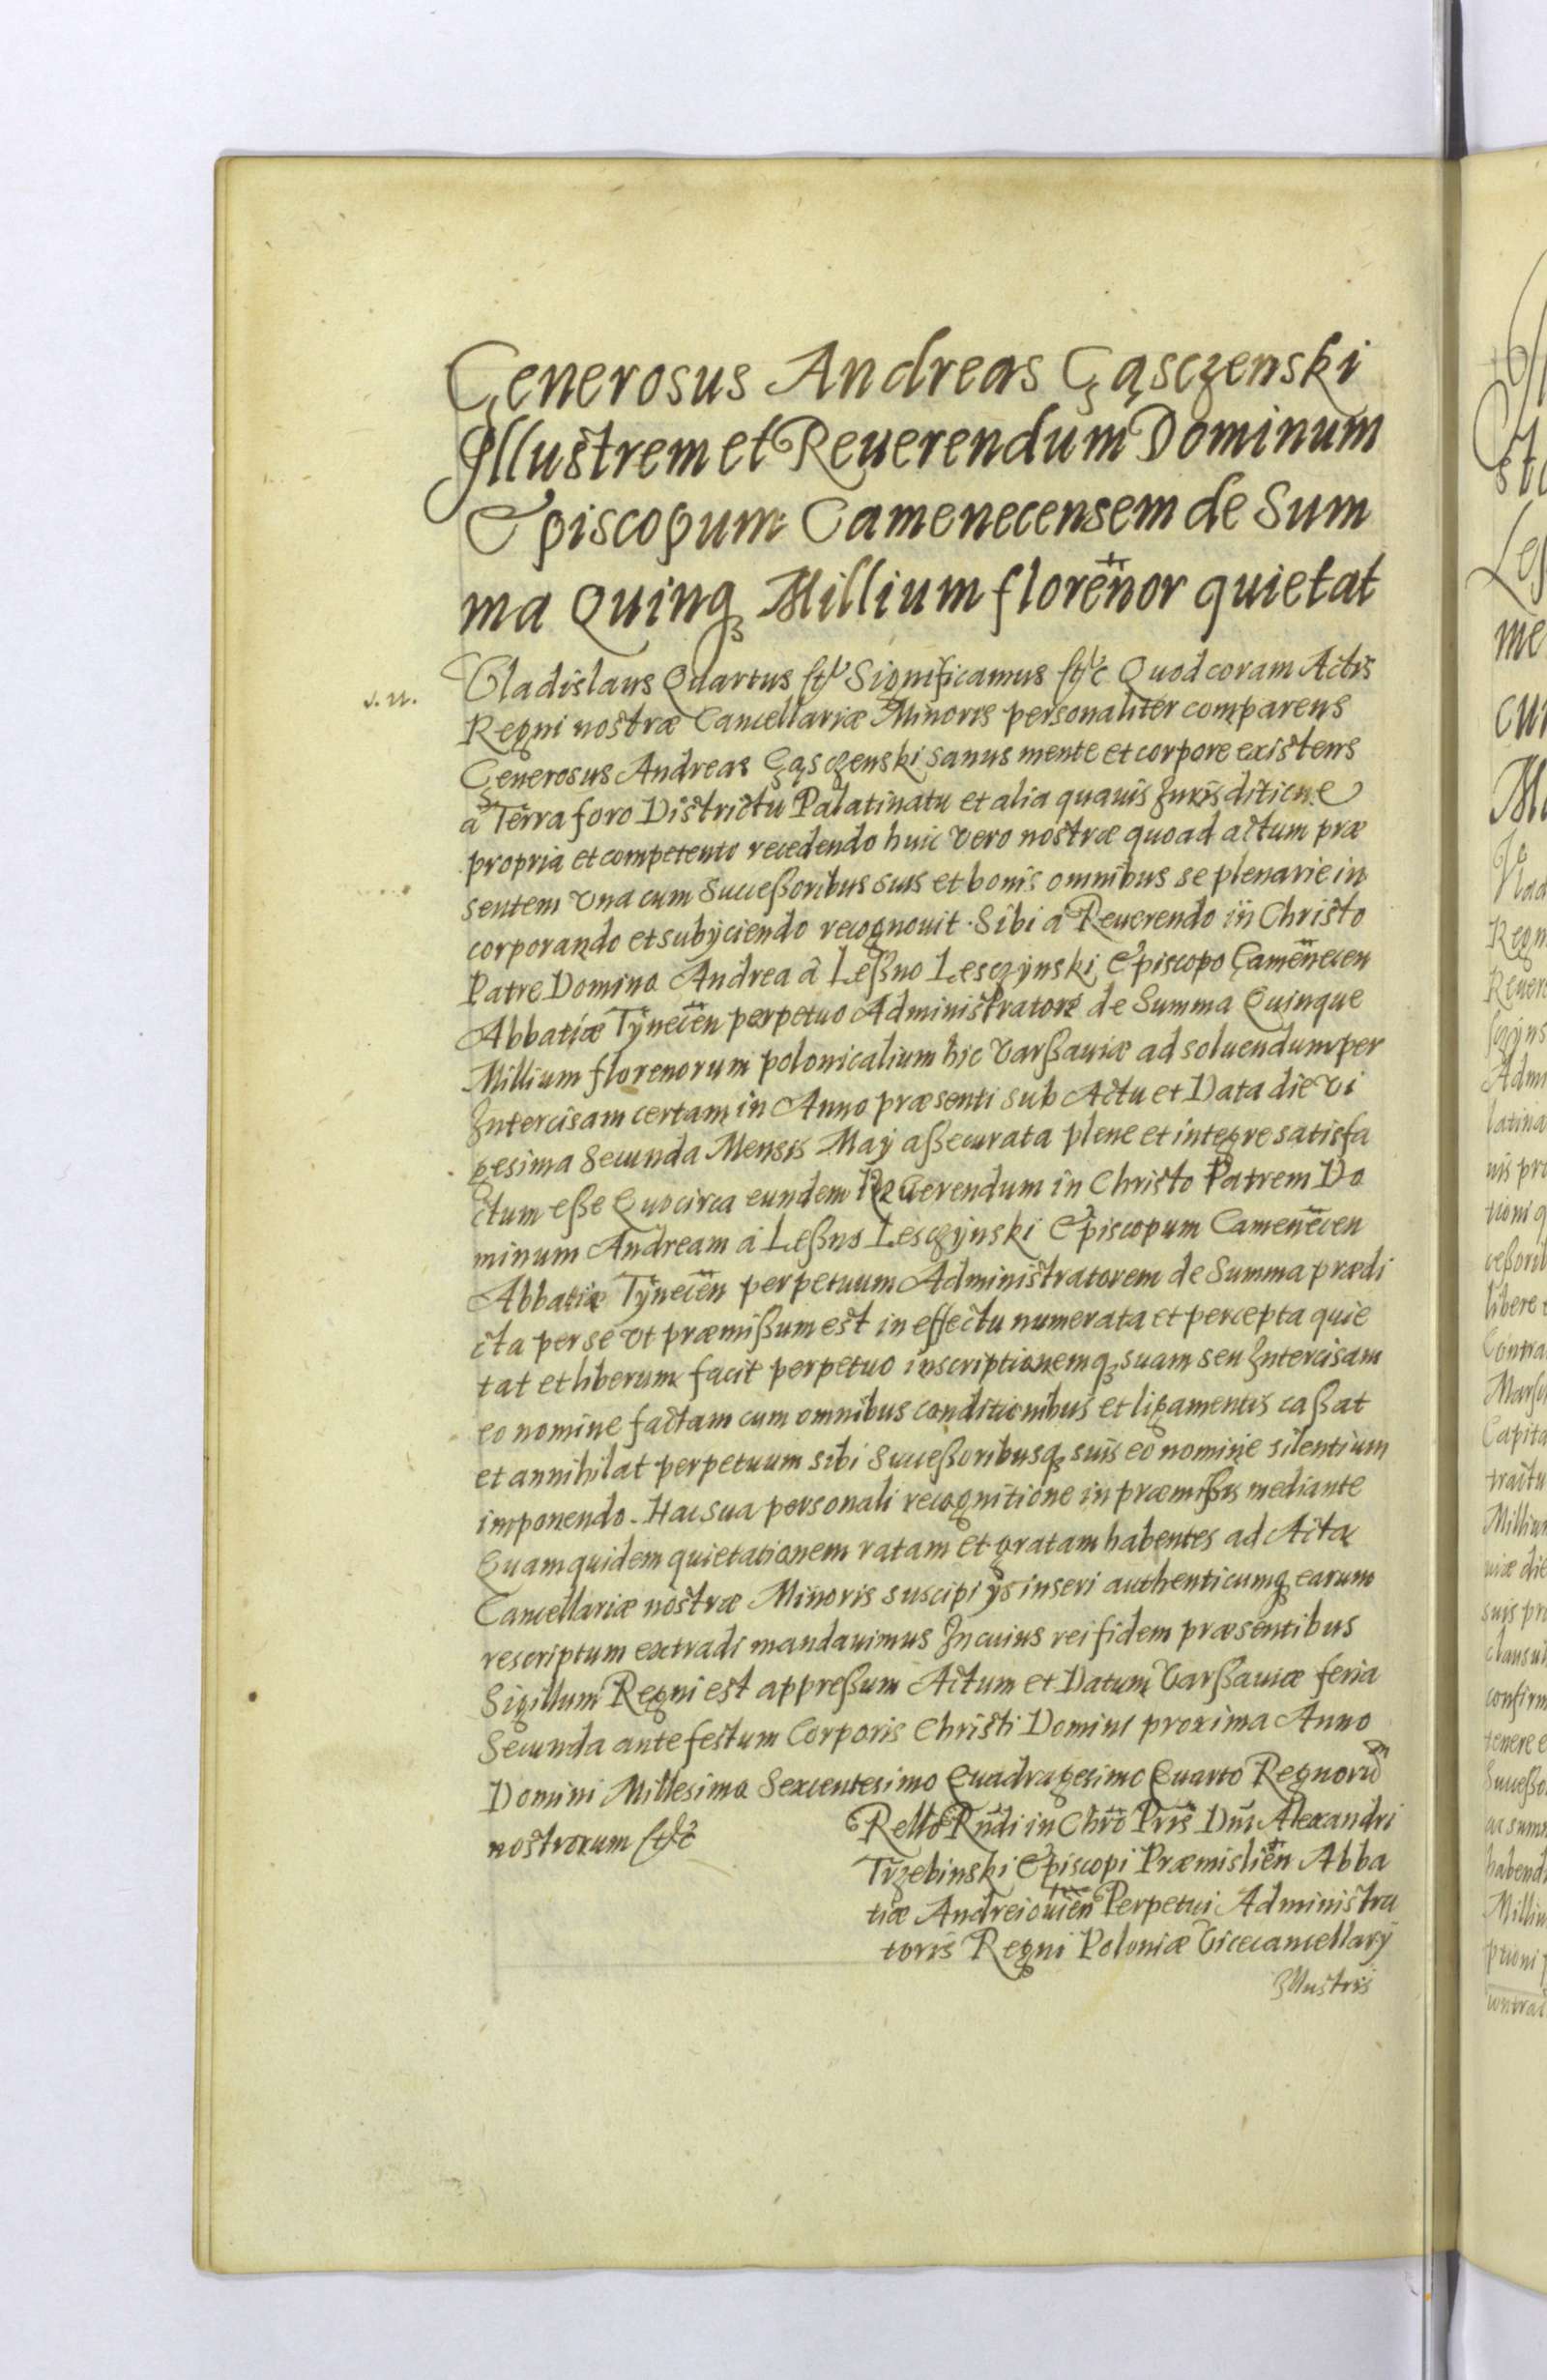 Generosus Andreas Gąsczenski
Illustrem et Reuerendum Dominum
Episcopum Camenecensem de Sum
ma Quinq Millium floren̄or quietat
Vladislaus Quartus &c Significamus &c Quod coram Actis
Regni nostræ Cancellariæ Minoris personaliter comparens
Generosus Andreas Gąsczenski sanus mente et corpore existens
à Terra foro Districtu Palatinatu et alia quauis Jurisditione
propria et competente recedendo huic vero nostræ quoad actum præ
sentem vna cum Successoribus suis et bonis omnibus se plenarie in
corporando et subyciendo recognouit. Sibi à Reuerendo in Christo
Patre Domino Andrea à Leßno Lesczynski Episcopo Camen̄ecen
Abbatiæ Tÿnecen̄ perpetuo Administratore de Summa Quinque
Millium florenorum polonicalium hic Varßauiæ ad soluendum per
Intercisam certam in Anno præsenti sub Actu et Data die Vi
gesima Secunda Mensis Maÿ aßecurata plene et integre satisfa
ctum eße Quocirca eundem Reuerendum in Christo Patrem Do
minum Andream à Leßno Lesczÿnski Episcopum Camen̄ecen
Abbatiæ Tÿnecen̄ perpetuum Administratorem de Summa prædi
cta per se vt præmißum est in effectu numerata et percepta quie
tat et liberum facit perpetuo inscriptionemq suam seu Intercisam
eo nomine factam cum omnibus conditionibus et ligamentis caßat
et annihilat perpetuum sibi Succeßoribusq suis eo nomine silentium
imponendo. Hac sua personali recognitione in præmißis mediante
Quamquidem quietationem ratam et gratam habentes ad Acta
Cancellariæ nostræ Minoris suscipi ÿs inseri authenticumq earum
rescriptum extradi mandauimus In cuius rei fidem præsentibus
Sigillum Regni est appreßum Actum et Datum Varßauiæ feria
Secunda ante festum Corporis Christi Domini proxima Anno
Domini Millesimo Sexcentesimo Quadragesimo Quarto Regnorū
nostrorum &c
Rello Rn̄di in Chrō Pris̄ Dni Alexandri
Trzebinski Episcopi Præmislien̄ Abba
tiæ Andreiouien̄ Perpetui Administra
toris Regni Poloniæ Vicecancellarÿ
Illustris